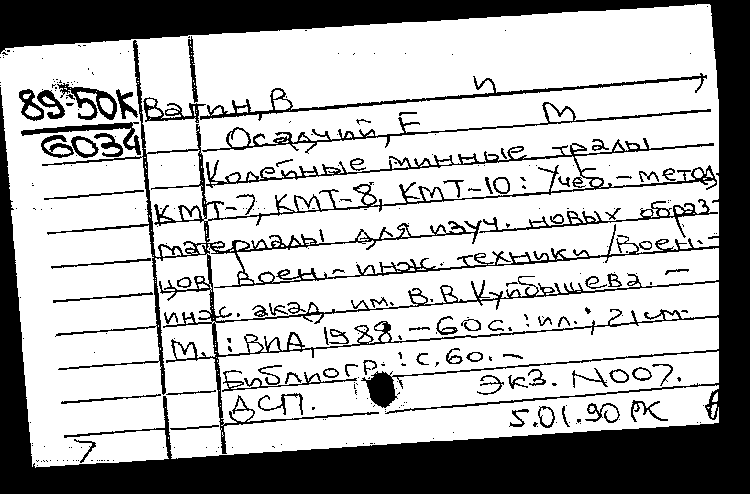 89-50К Вагин, В П
6034 Осадчий, Е М
Колейные минные тралы
КМТ-7, КМТ-8, КМТ-10: Учеб.-метод.
материалы для изуч. новых образ-
цов воен.-инж. техники /Воен.-
инж. акад. им. В.В.Куйбышева. –
М.: ВИА, 1988. – 60с.: ил.; 21см.
Библиогр.: с.60. –
ДСП. Экз. N007.
5.01.90 РК